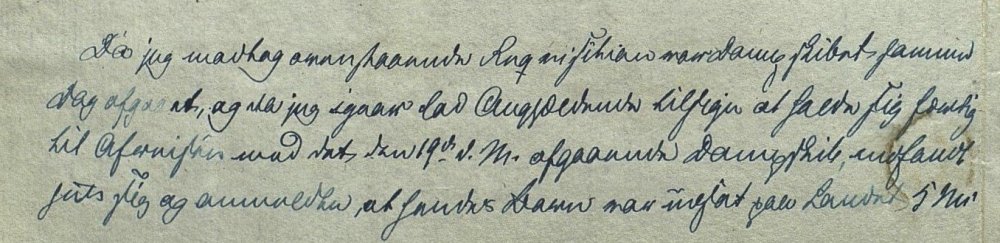 Da jeg modtog ovenstaaende Requisition var Dampskibet samme
Dag afgaaet, og da jeg igaar lod Angjældende tilsige at holde sig færdig
til Afreisen med det den 19de d. M. afgaaende Dampskib, indfandt
hun sig og anmeldte, at hendes Barn var udsat paa Landet 5 Mi